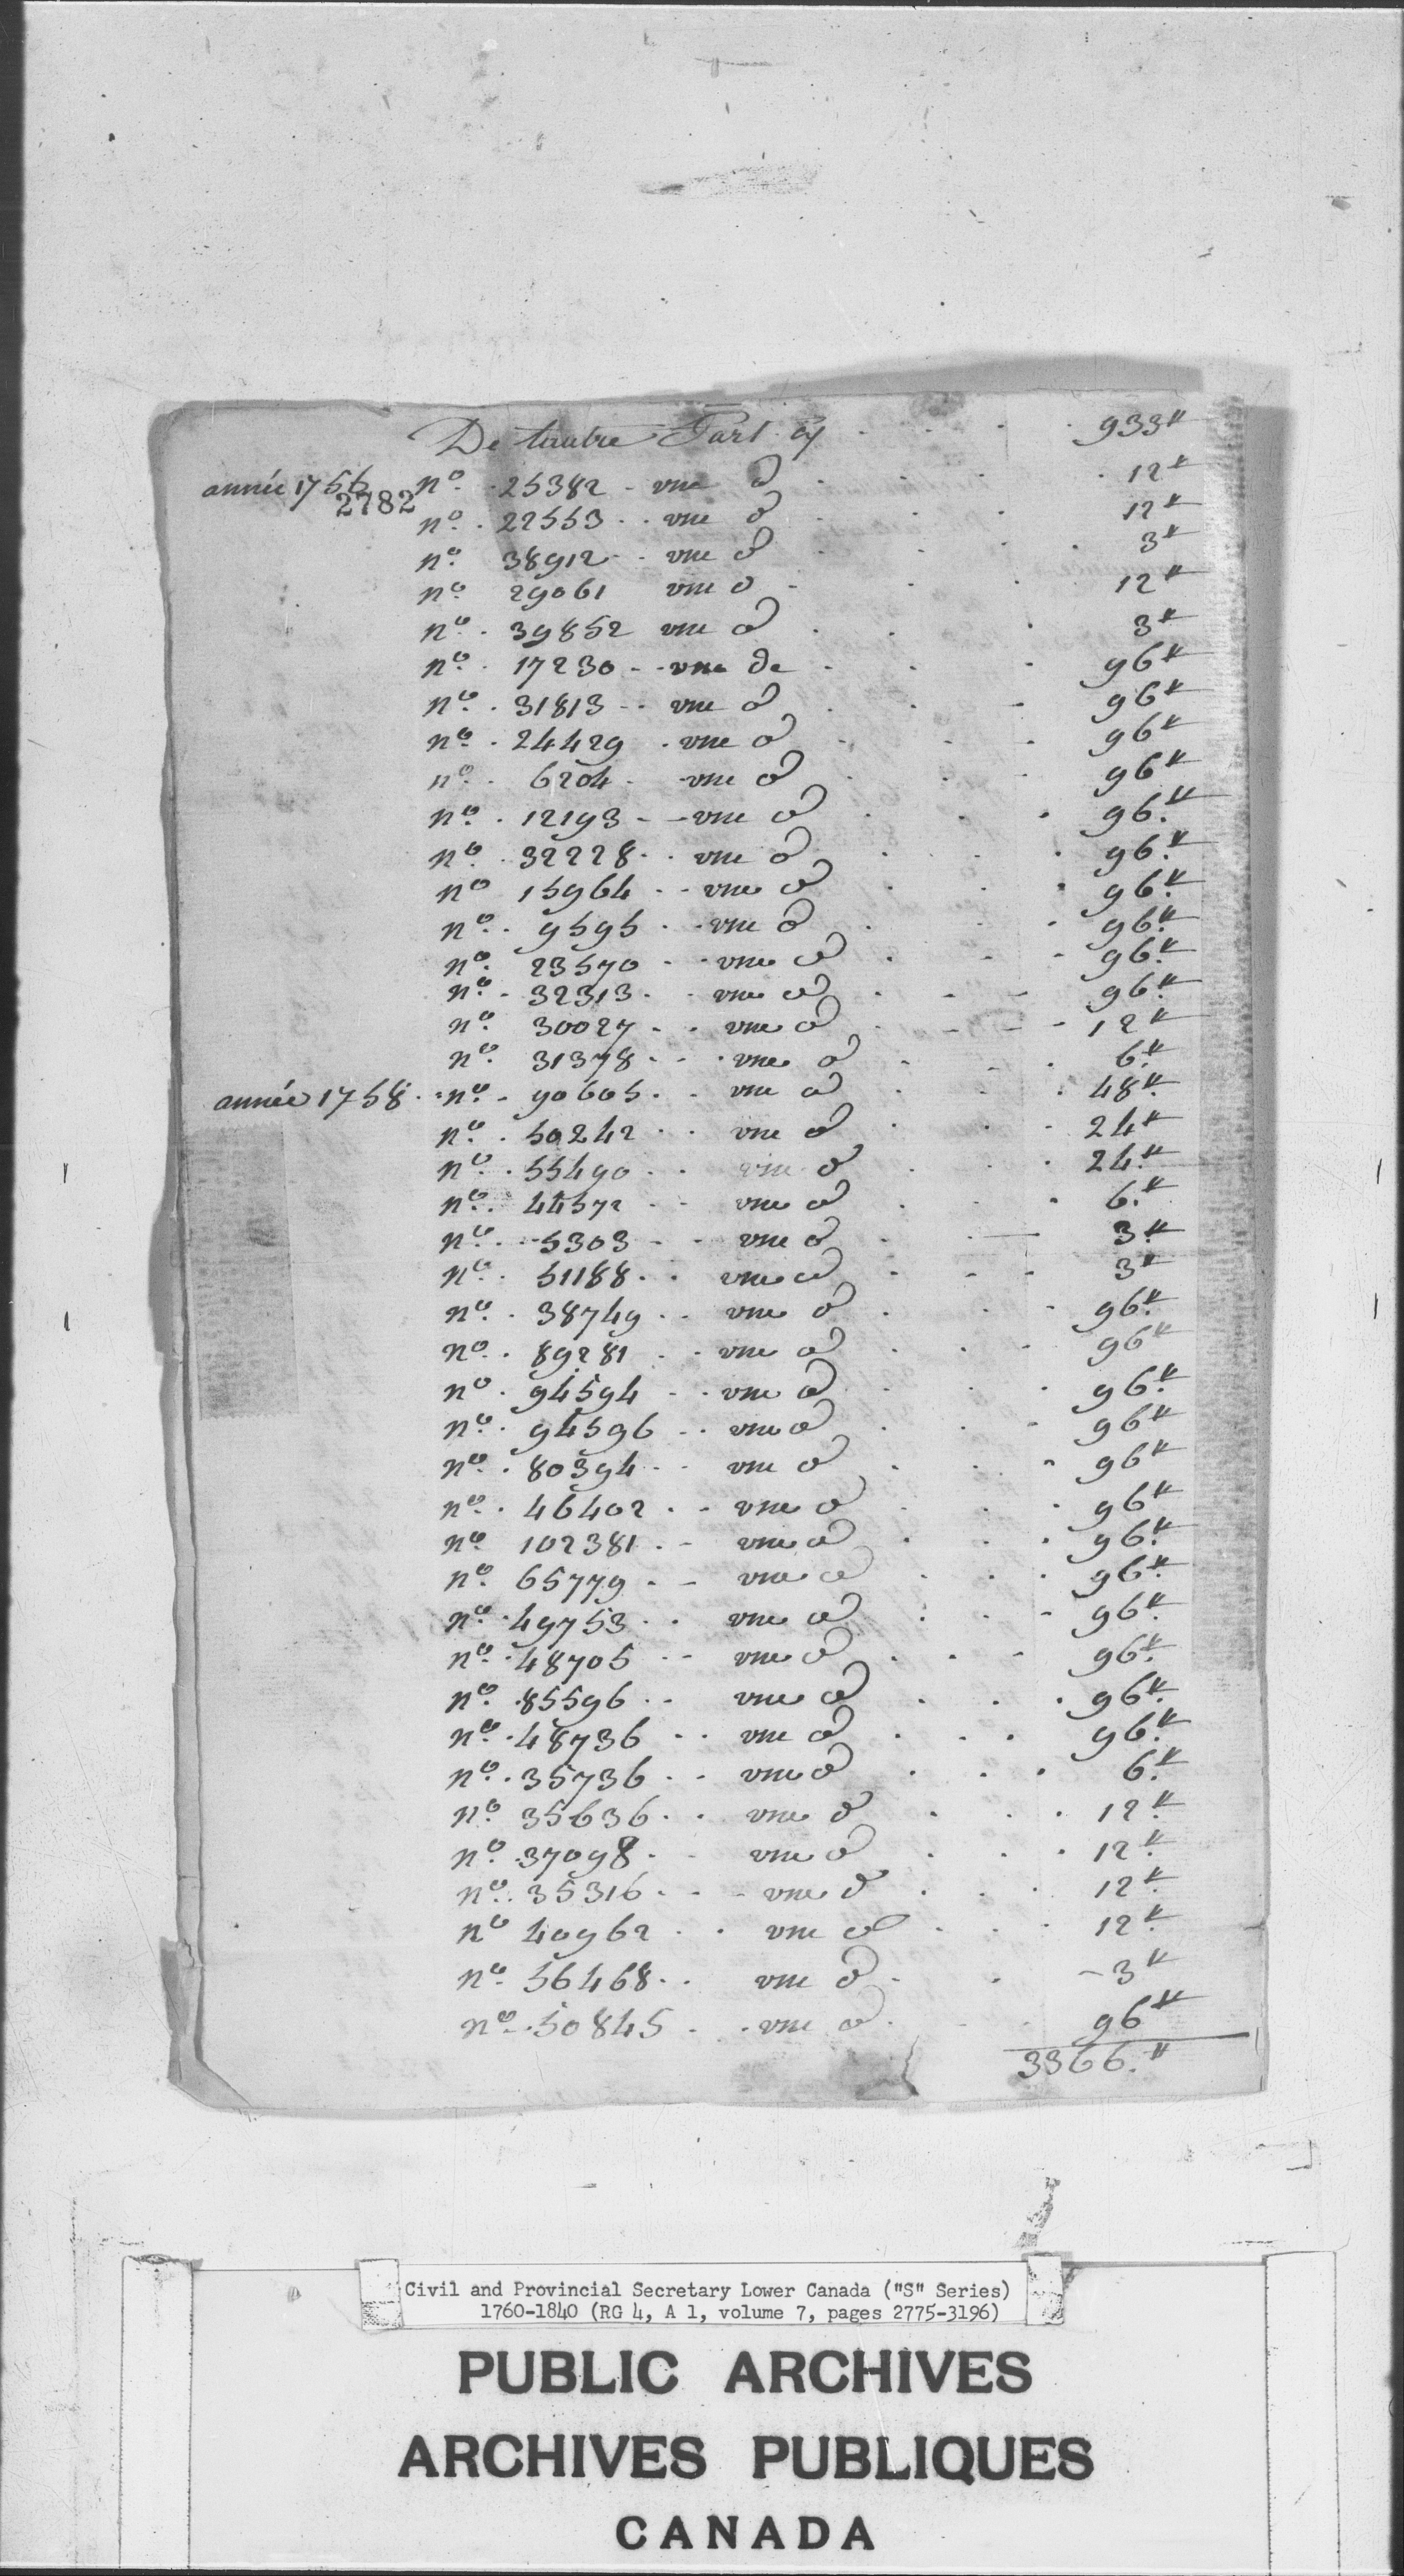 De lautre Part cy . . . . 933 ₶
année 1756 n.º 25382 - une d . . . 12 ₶
2782
n.º 22553 . . une d . . . 12 ₶
n.º 38912 - une d . . . 3 ₶
n.º 29061 une d - . . 12 ₶
n.º 39852 une d . . . 3 ₶
n.º 17230 - - une de . . - 96 ₶
n.º 31813 - - une d . . - 96 ₶
n.º 24429 . une d . - - 96 ₶
n.º 6204 - une d . . - 96 ₶
n.º 12193 - - une d . . . 96 ₶
n.º 32228 . . une d . . . 96 ₶
n.º 15964 - - une d . . . 96 ₶
n.º 9595 . . une d . . . 96 ₶
n.º 23570 - - une d . - - 96 ₶
n.º 32313 . - une d . - - 96 ₶
n.º 30027 . . une d . - - 12 ₶
n.º 31378 - - . une d . . . 6 ₶
année 1758 . n.º 90605 . . une d . . . 48 ₶
n.º 50242 . . une d . . - 24 ₶
n.º 55490 . . une d . . . 24 ₶
n.º 44572 - - une d . . . 6 ₶
n.º 5303 - - une d . - 3 ₶
n.º 51188 . . une d . - - 3 ₶
n.º 38749 . . une d . . - 96 ₶
n.º 89281 . . une d . . - 96 ₶
n.º 94594 - . une d . . . 96 ₶
n.º 94596 . . une d . . - 96 ₶
n.º 80394 - - une d . . - 96 ₶
n.º 46402 . - une d . . . 96 ₶
n.º 102381 . - une d . . . 96 ₶
n.º 65779 . - une d . . . 96 ₶
n.º 49753 . . une d . . - 96 ₶
n.º 48705 - - une d . . - 96 ₶
n.º 85596 . - une d . . . 96 ₶
n.º 48736 . . une d . . . 96 ₶
n.º 35736 . - une d . . . 6 ₶
n.º 35636 . . une d . . . 12 ₶
n.º 37098 . - une d . . . 12 ₶
n.º 35316 . - - une d . . . 12 ₶
n.º 40962 . . une d . . . 12 ₶
n.º 56468 . . une d . . - 3 ₶
n.º 50845 . . une d . . 96 ₶
3366 ₶
Civil and Provincial Secretary Lower Canada ("S" Series)
1760-1840 (RG 4, A 1, volume 7, pages 2775-3196)
PUBLIC ARCHIVES
ARCHIVES PUBLIQUES
CANADA